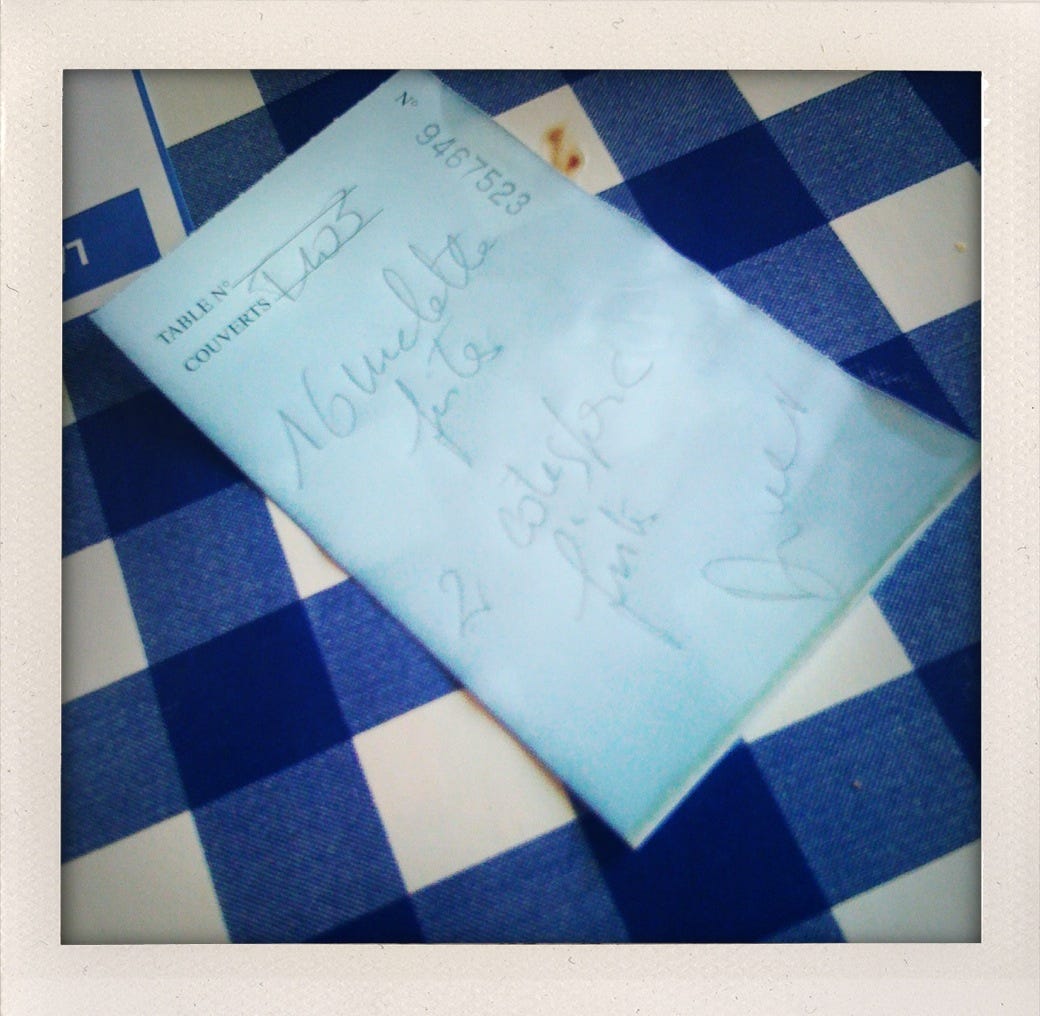 N° 9467523
TABLE N°
COUVERTS
1 Omelette
frites
2 cotes porc
frite